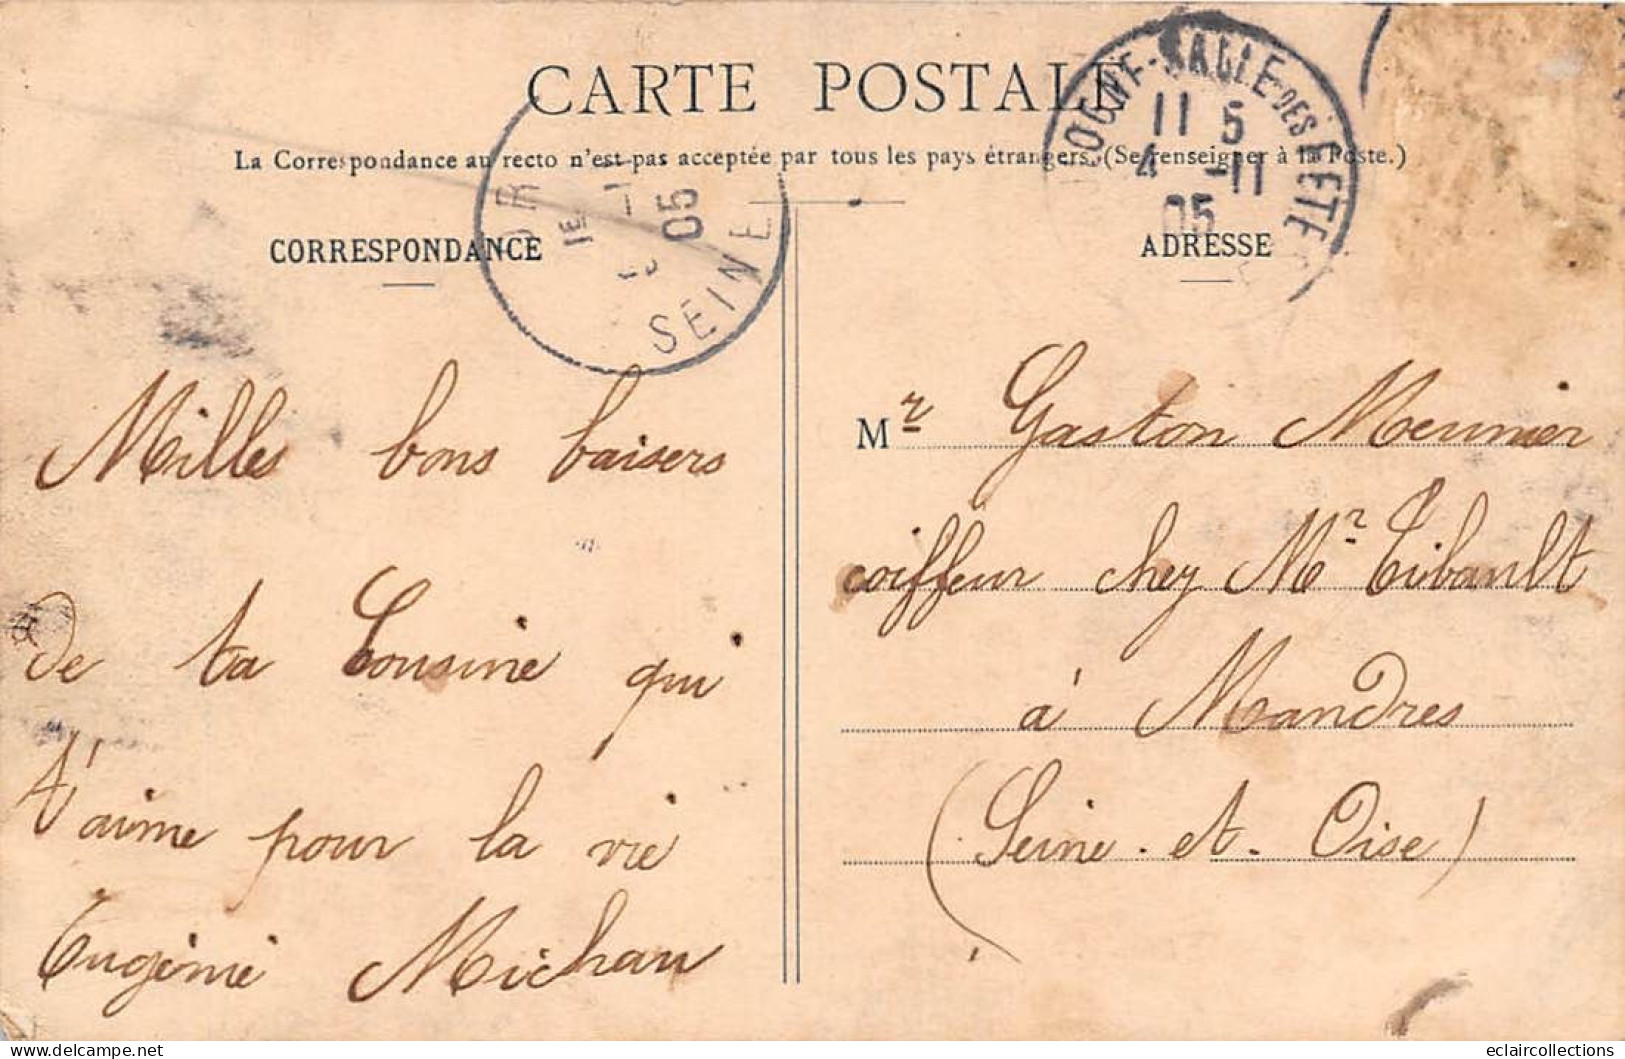 CARTE POSTALE
La Correspondance au recto n'est pas acceptée par tous les pays étrangers. (Se renseigner à la Poste.)
CORRESPONDANCE
ADRESSE
SEINE
05
11 5
4 -11
05
Milles bons baisers
de ta Cousine qui
t'aime pour la vie
Eugénie Michau
Mr Gaston Meunier
coiffeur chez Mr Tibault
à Mandres
(Seine-et-Oise)
eclaircollections